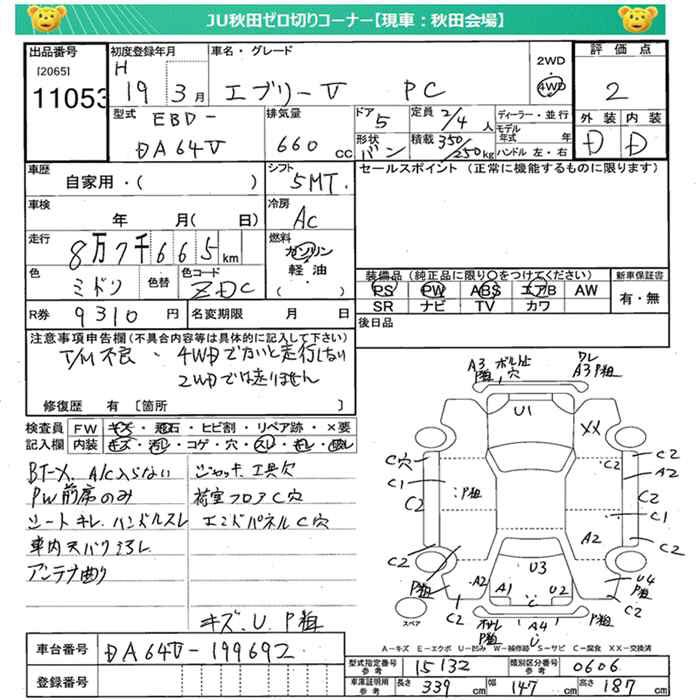 JU秋田ゼロ切りコーナー【現車：秋田会場】
出品番号
[2065]
11053
初度登録年月
H 19 3 月
車名・グレード
エブリーV PC
2WD
4WD
評価点
2
外装 内装
D D
型式
EBD-
DA64V
排気量
660 cc
ドア
5
形状
バン
定員 2/4 人
積載 350/250kg
ディーラー・並行
モデル年式 年
ハンドル 左・右
車歴
自家用・( )
シフト
5MT.
セールスポイント (正常に機能するものに限ります)
車検
年 月( 日)
冷房
AC
走行
8万7千665 km
燃料
ガソリン
軽油
( )
色
ミドリ
色替
色コード
ZDC
装備品 (純正品に限り○をつけてください)
PS PW ABS エアB AW
SR ナビ TV カワ
新車保証書
有・無
R券 9310 円
名変期限 月 日
後日品
注意事項申告欄(不具合内容等は具体的に記入して下さい)
T/M不良、4WDでないと走行しない
2WDでは走りません
修復歴 有 [箇所 ]
検査員記入欄
FW キズ・飛石・ヒビ割・リペア跡・×要
内装 キズ・汚レ・コゲ・穴・スレ・キレ・破レ
BT-X. A/C入らない
PW前席のみ
シートキレ. ハンドルスレ
車内天バリ汚レ
アンテナ曲り
ジャッキ. 工具欠
荷室フロアC穴
エンドパネルC穴
キズ、U、P粗
A3 ボルト止
P粗、穴
ワレ
A3 P粗
U1
XX
C穴
C1
C2
C2
:P粗
C2
A2
C2
C1
C2
A2
U3
P粗
A2
A1
U2
U4
P粗
C2
C2
スペア
P粗
A4
U
A-キズ E-エクボ U-凹み W-補修跡 S-サビ C-腐食 XX-交換済
車台番号
DA64V-199692
登録番号
型式指定番号 参考
15132
類別区分番号 参考
0606
車庫証明用 参考
長さ 339 cm
幅 147 cm
高さ 187 cm